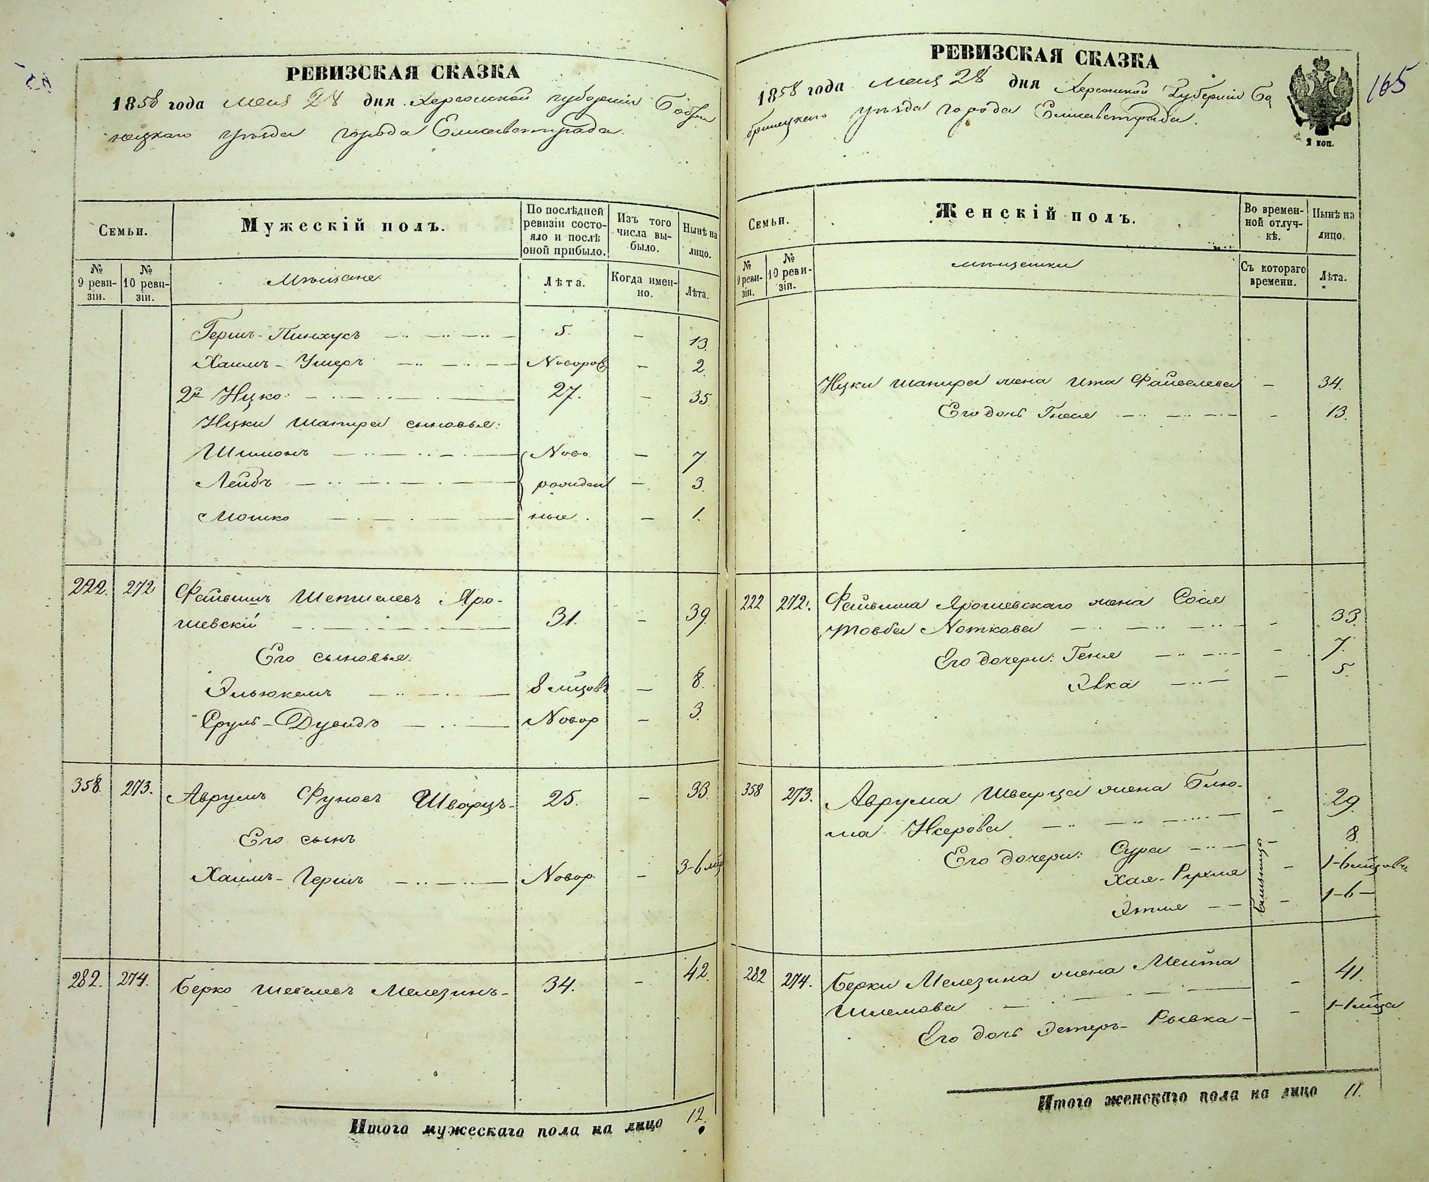 РЕВИЗСКАЯ СКАЗКА
1858 года мая 28 дня Херсонской губернии Бобри
нецкаго уѣзда города Елисаветграда.
Семьи.
Мужескій полъ.
По послѣдней ревизіи состояло и послѣ оной прибыло.
Изъ того числа выбыло.
Нынѣ на лицо.
№ 9 ревизіи.
№ 10 ревизіи.
Мѣщане
Лѣта.
Когда именно.
Лѣта.
Гершъ-Пинхусъ 5. — 13
Хаимъ-Ушеръ Новоров — 2.
2й Ицко 27. — 35
Ицки Шапира сыновья:
Шимонъ Ново — 7
Лейбъ рожден — 3.
Мошко ные. — 1.
222. 272 Файвишъ Шепшелевъ Яро-
шевскій 31. — 39
Его сыновья:
Эльюкемъ 8 мѣсцовъ — 8.
Сруль-Дувидъ Новор — 3.
358. 273. Аврумъ Фуковъ Шварцъ 25. — 33.
Его сынъ
Хаимъ-Гершъ Новор. — 3-6 мѣс
282. 274. Берко Шевелевъ Мелезинъ 34. — 42.
Итого мужескаго пола на лицо 12.
165
РЕВИЗСКАЯ СКАЗКА
1858 года мая 28 дня Херсонской Губерніи Бо
бринецкаго уѣзда города Елисаветграда.
2 коп.
Семьи.
Женскій полъ.
Во временной отлучкѣ.
Нынѣ на лицо.
№ 9 ревизіи.
№ 10 ревизіи.
мѣщанки
Съ котораго времени.
Лѣта.
Ицки Шапира жена Ита Файвелева — 34.
Его дочь Песя — 13.
222 272. Файвиша Ярошевскаго жена Сося
ТовбаНоткова — 33.
Его дочери: Геня — 7.
Эвка — 5.
358 273. Аврума Шварца жена Блю-
ма Усерова — 29.
Его дочери: Сура — 8
Хая-Рухля — 1-6 мѣсцовъ
Этля — 1-6 —
близнецы
282 274. Берки Мелезина жена Мейта
Шлемова — 41.
Его дочь Эстеръ-Рывка — 1-1 мѣсца
Итого женскаго пола на лицо 11.